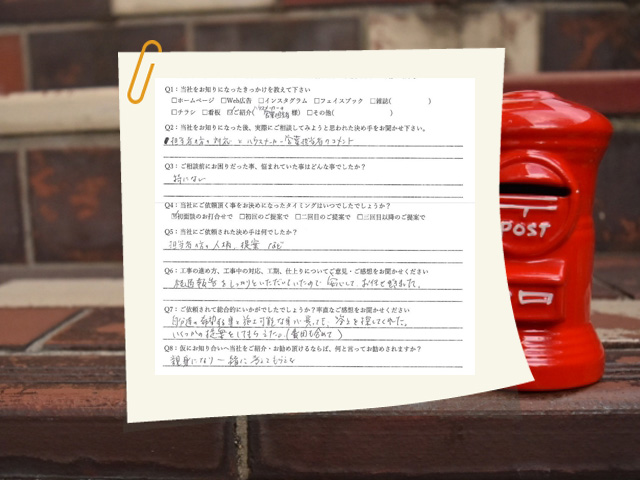 Q1：当社をお知りになったきっかけを教えて下さい
□ホームページ □Web広告 □インスタグラム □フェイスブック □雑誌( )
□チラシ □看板 ☑ご紹介(ハウスメーカー 営業担当者 様) □その他( )
Q2：当社をお知りになった後、実際にご相談してみようと思われた決め手をお聞かせ下さい。
担当者様の対応と ハウスメーカー営業担当者のコメント
Q3：ご相談前にお困りだった事、悩まれていた事はどんな事でしたか？
特になし
Q4：当社にご依頼頂く事をお決めになったタイミングはいつでしたでしょうか？
☑初面談のお打合せで □初回のご提案で □二回目のご提案で □三回目以降のご提案で
Q5：当社にご依頼された決め手は何でしたか？
担当者様の人柄、提案 など
Q6：工事の進め方、工事中の対応、工期、仕上りについてご意見・ご感想をお聞かせください
報告をしっかりといただいていたので 安心して、お任せ出来た。
Q7：ご依頼されて総合的にいかがでしたでしょうか？率直なご感想をお聞かせください
自分達の希望 と 可能な
いくつかの提案をしてもらえた。(費用も含めて)
Q8：仮にお知り合いへ当社をご紹介・お勧め頂けるならば、何と言ってお勧めされますか？
親身になり 一緒に 考えてもらえる
POST